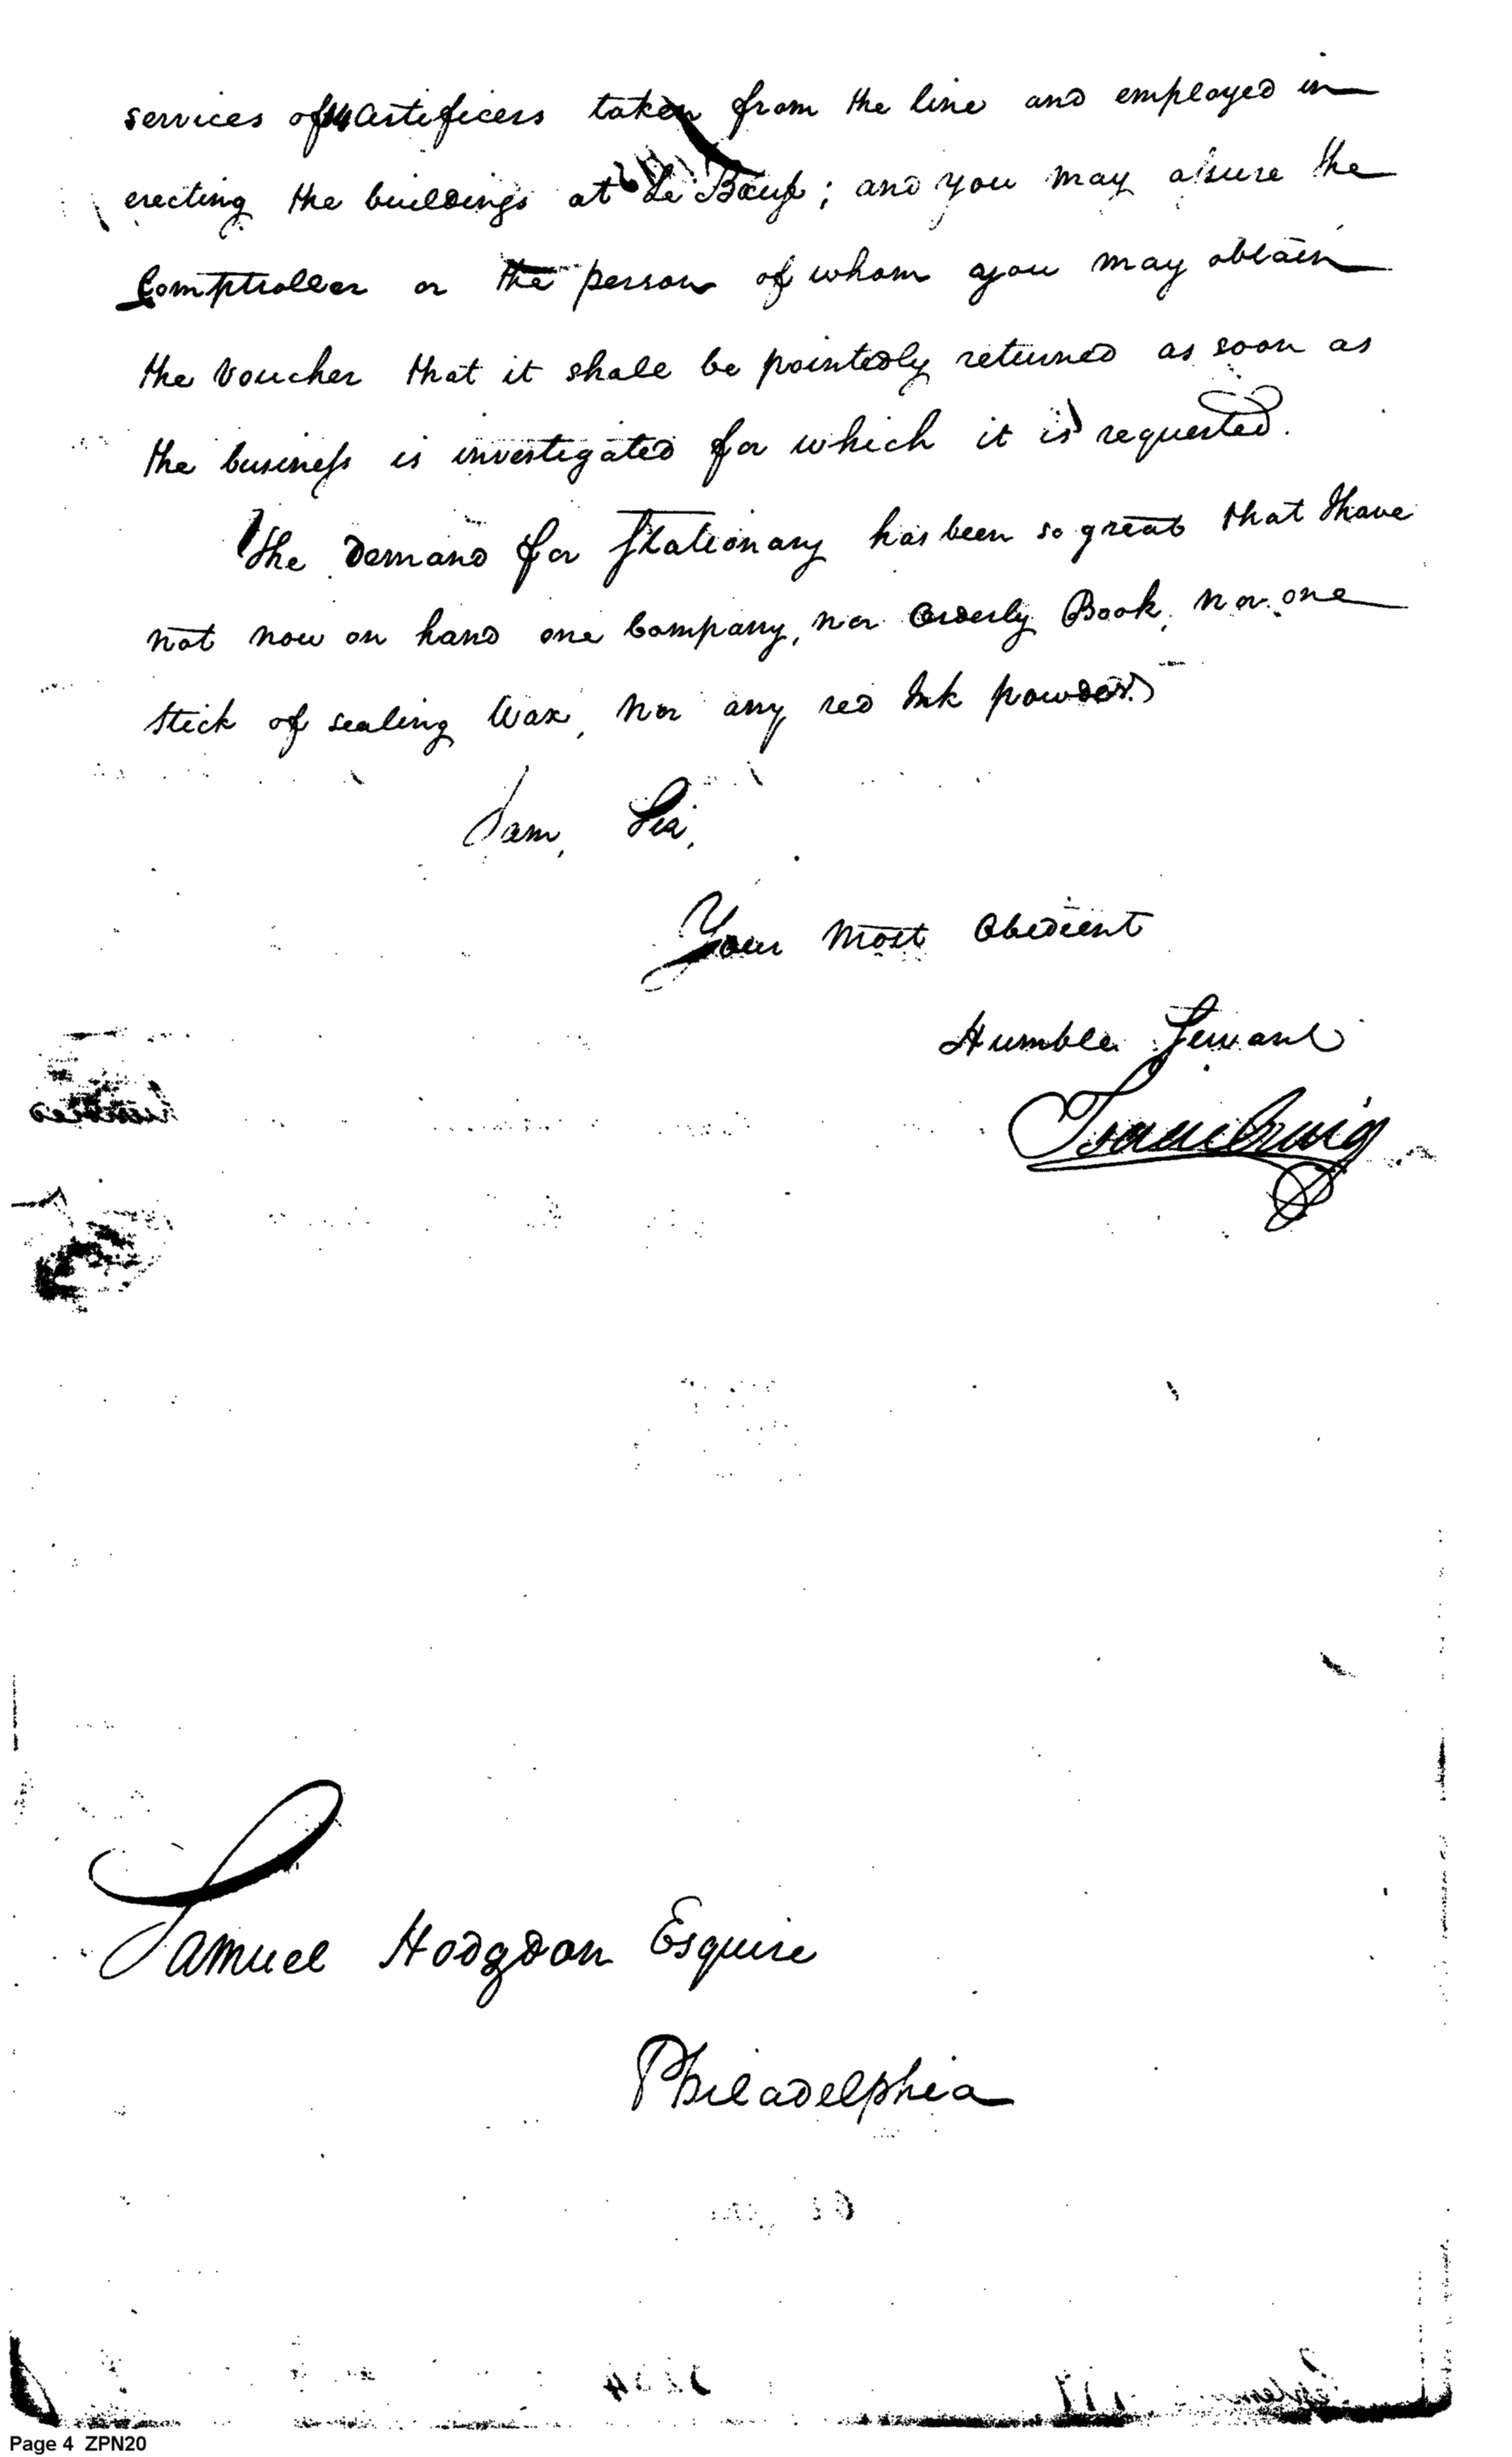 services of 14 artificers taken from the line and employed in
erecting the buildings at Le Bœuf; and you may assure the
Comptroller or the person of whom you may obtain
the Voucher that it shall be pointedly returned as soon as
the business is investigated for which it is requested.
The Demand for Stationary has been so great that I have
not now on hand one Company, nor Orderly Book, nor one
stick of sealing Wax, nor any red Ink powder.
I am, Sir,
Your Most Obedient
Humble Servant
Isaac Craig
Samuel Hodgdon Esquire
Philadelphia
Page 4 ZPN20